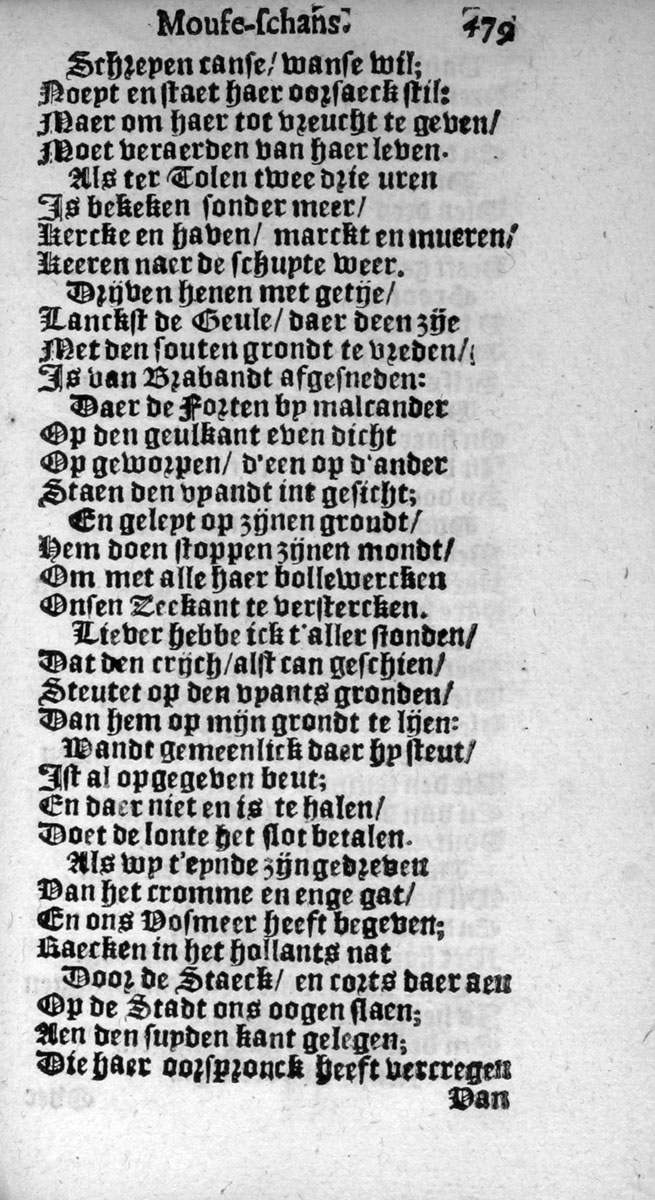 Mouse-schans. 479
Schrepen canse/ wanse wil;
Noept en staet haer oorsaeck stil:
Maer om haer tot vreucht te geven/
Moet veraerden van haer leven.
Als ter Tolen twee drie uren
Is bekeken sonder meer/
Kercke en haven/ marckt en mueren/
Keeren naer de schupte weer.
Drijven henen met getije/
Lanckst de Geule/ daer deen zije
Met den souten grondt te vreden/
Is van Brabandt afgesneden:
Daer de Forten by malcander
Op den geulkant even dicht
Op geworpen/ d'een op d'ander
Staen den vyandt int gesicht;
En geleyt op zijnen grondt/
Hem doen stoppen zijnen mondt/
Om met alle haer bollewercken
Onsen Zeekant te verstercken.
Liever hebbe ick t'aller stonden/
Dat den crijch/ alst can geschien/
Steutet op den vyants gronden/
Dan hem op mijn grondt te lijen:
Wandt gemeenlick daer hy steut/
Ist al opgegeven beut;
En daer niet en is te halen/
Doet de lonte het slot betalen.
Als wy t'eynde zijn gedreven
Van het cromme en enge gat/
En ons Vosmeer heeft begeven;
Raecken in het hollants nat
Door de Staeck/ en corts daer aen
Op de Stadt ons oogen slaen;
Aen den suyden kant gelegen;
Die haer oorspronck heeft vercregen
Van